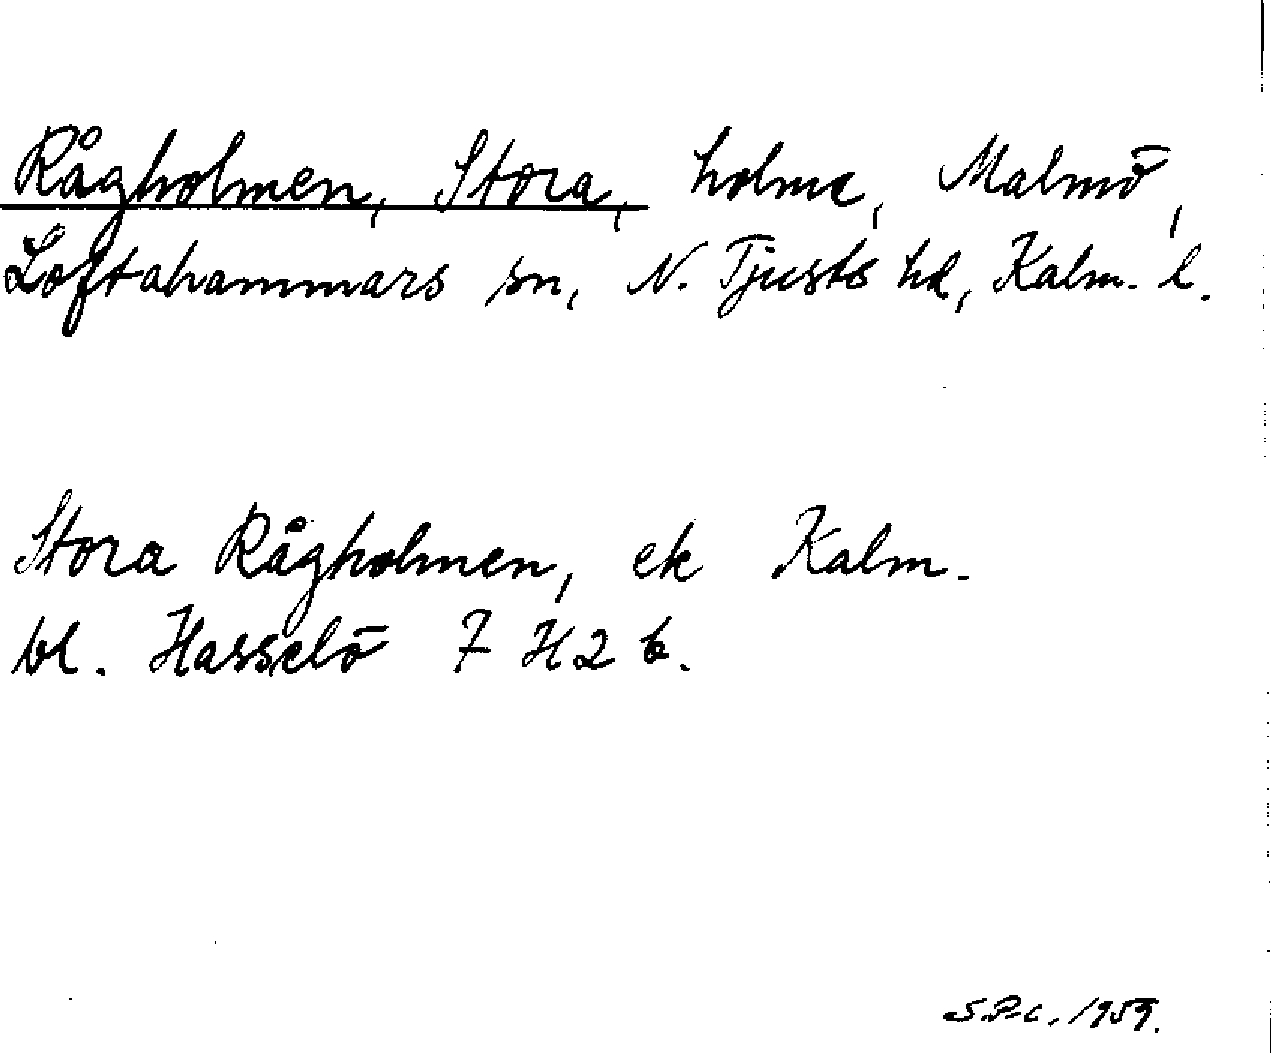 Rågholmen, Stora, holme, Malmö,
Loftahammars sn, N. Tjusts hd, Kalm. l.
Stora Rågholmen, ek Kalm.
bl. Hasselö 7 H 2 b.
S.P.C. 1959.